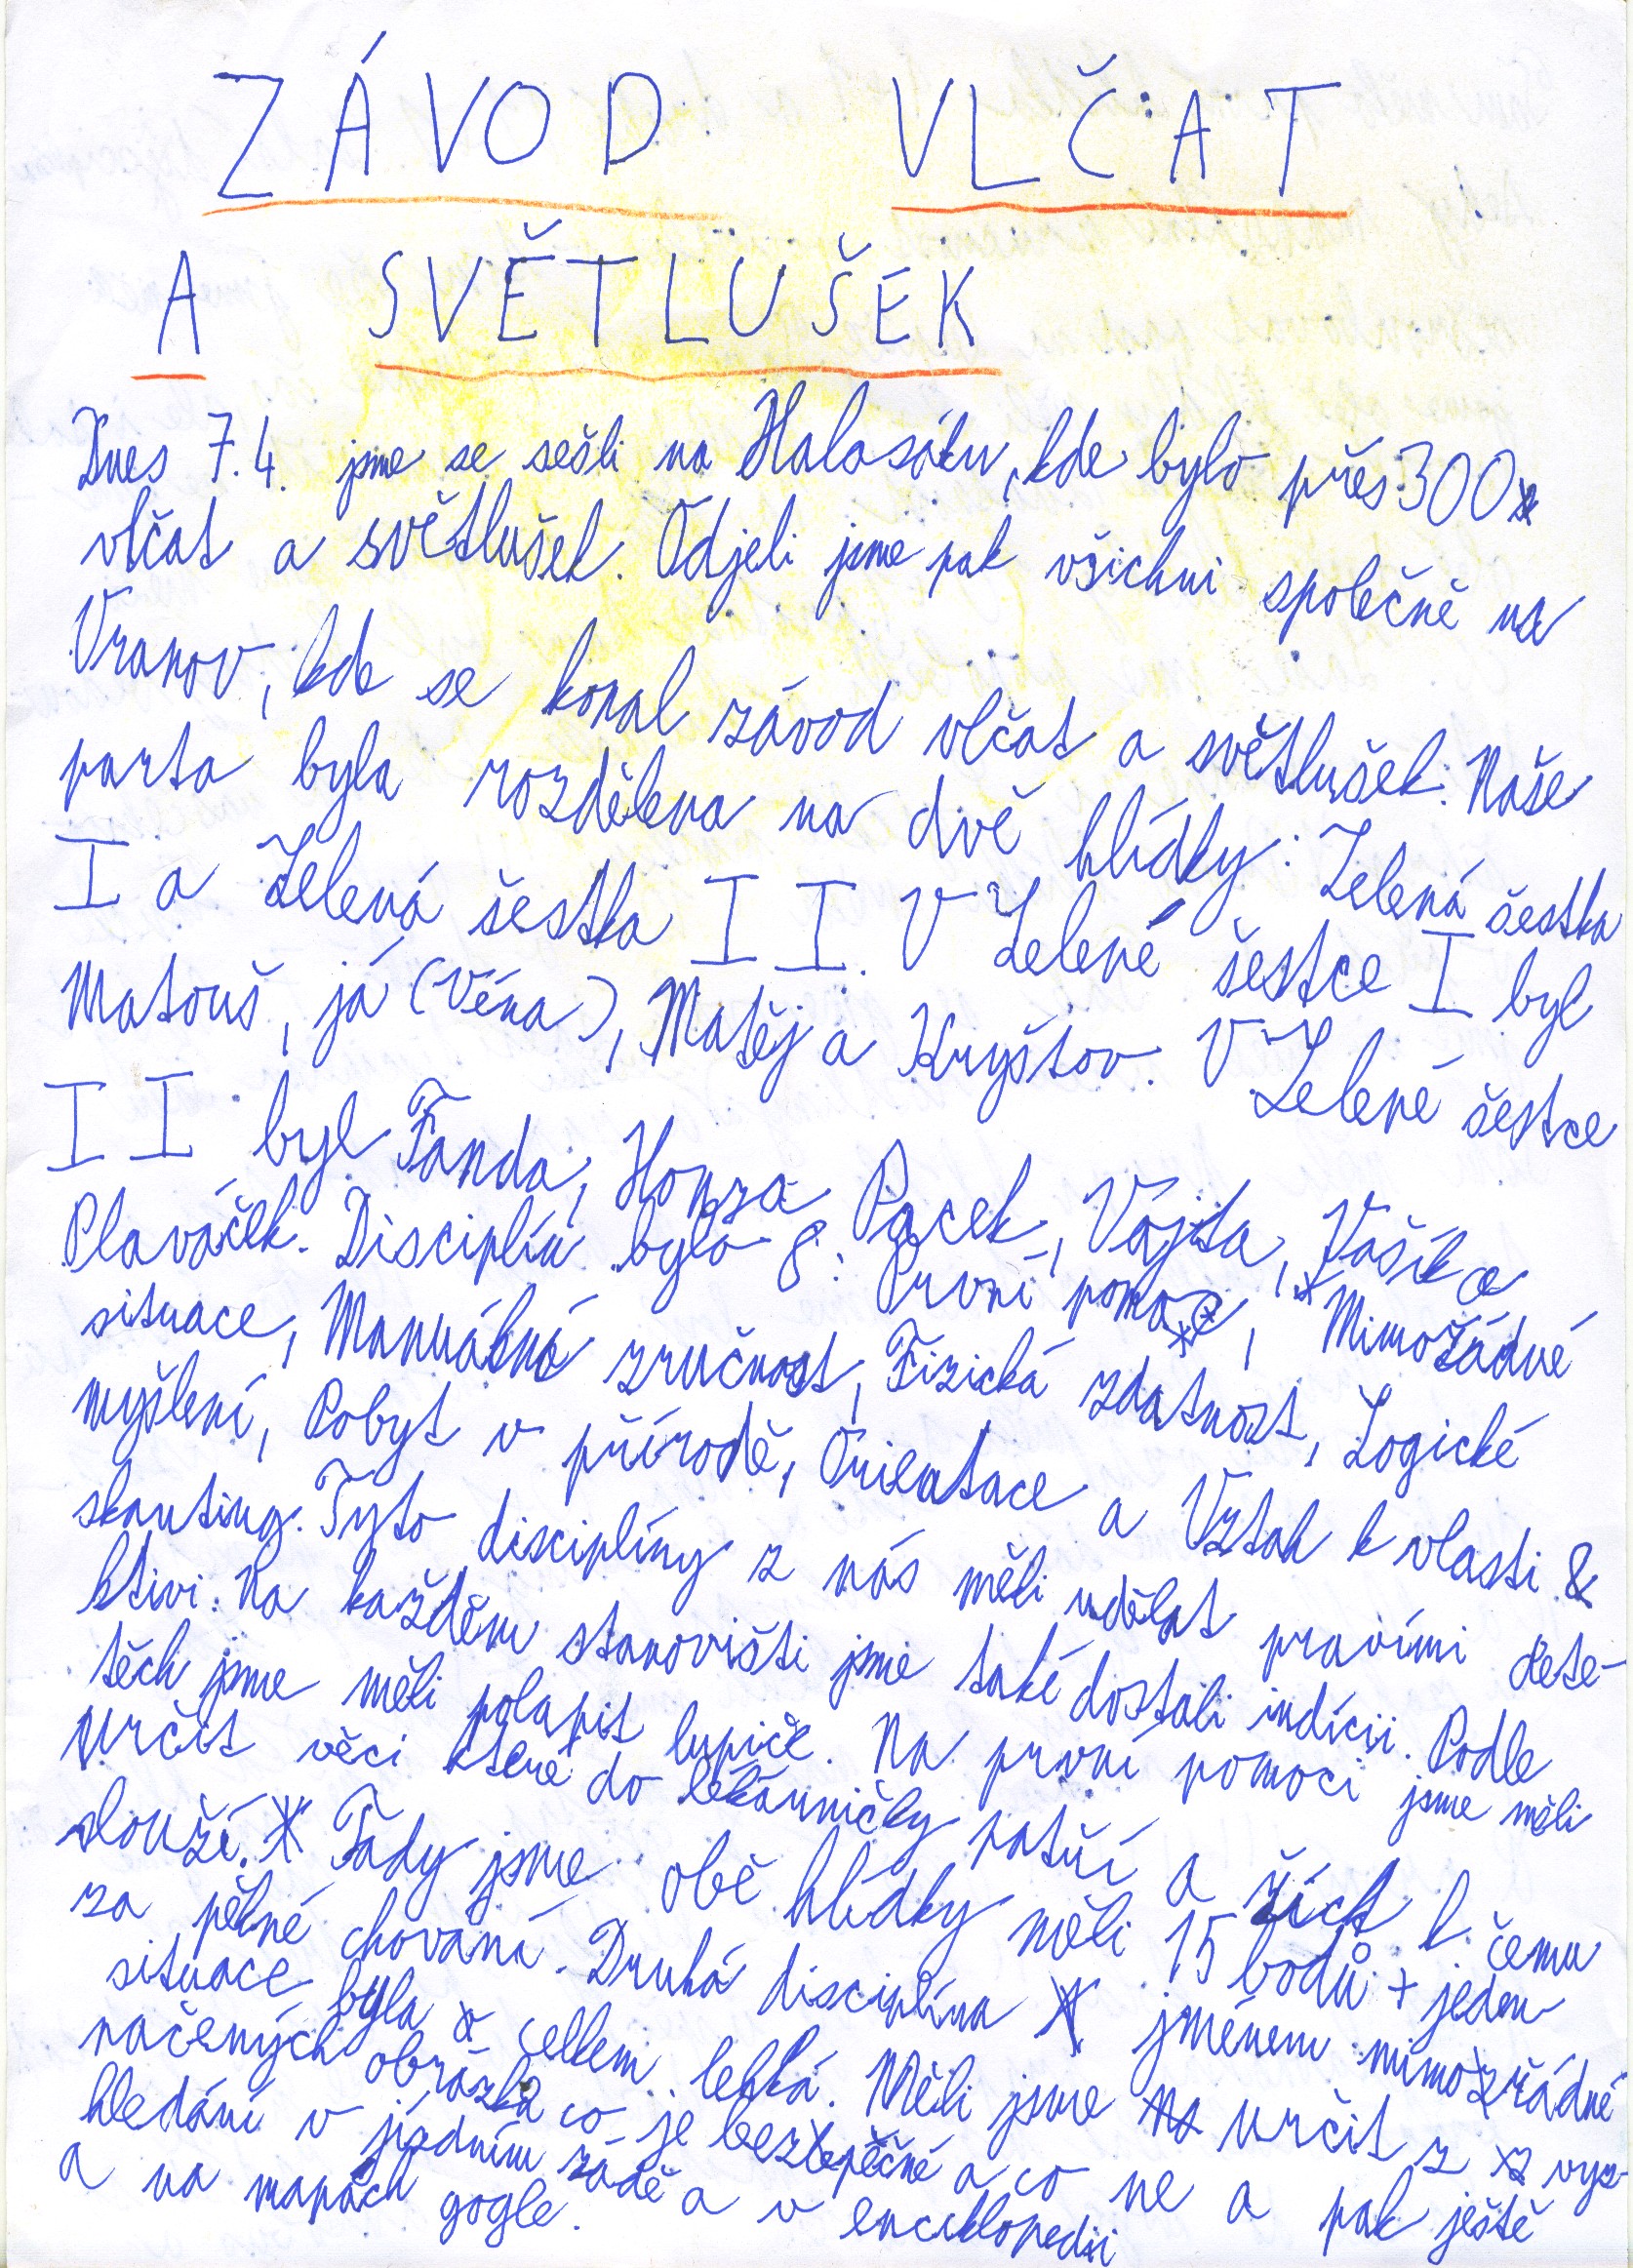 ZÁVOD VLČAT
A SVĚTLUŠEK
Dnes 7.4. jsme se sešli na Halasáku, kde bylo přes 300
vlčat a světlušek. Odjeli jsme pak všichni společně na
Vranov, kde se konal závod vlčat a světlušek. Naše
parta byla rozdělena na dvě hlídky: Zelená šestka
I a Zelená šestka II. V Zelené šestce I byl
Matouš, já (Véna), Matěj a Kryštov. V Zelené šestce
II byl Fanda, Honza Pacek, Vojta, Vašík a
Plaváček. Disciplín bylo 8: První pomoc, Mimořádné
situace, Manuální zručnost, Fizická zdatnost, Logické
myšlení, Pobyt v přírodě, Orientace a Vztah k vlasti &
skauting. Tyto disciplíny z nás měli udělat pravími dete-
ktivi. Na každém stanovišti jsme také dostali indícii. Podle
těch jsme měli polapit lupiče. Na první pomoci jsme měli
určit věci které do lékárničky patří a říct k čemu
slouží. Tady jsme obě hlídky měli 15 bodů + jeden
za pěkné chování. Druhá disciplína jménem mimořádné
situace byla celkem lehká. Měli jsme určit z vyz-
načených obrázků co je bezpěčné a co ne a pak ještě
hledání v jízdním řádě a v enciklopedii
a na mapách gogle.